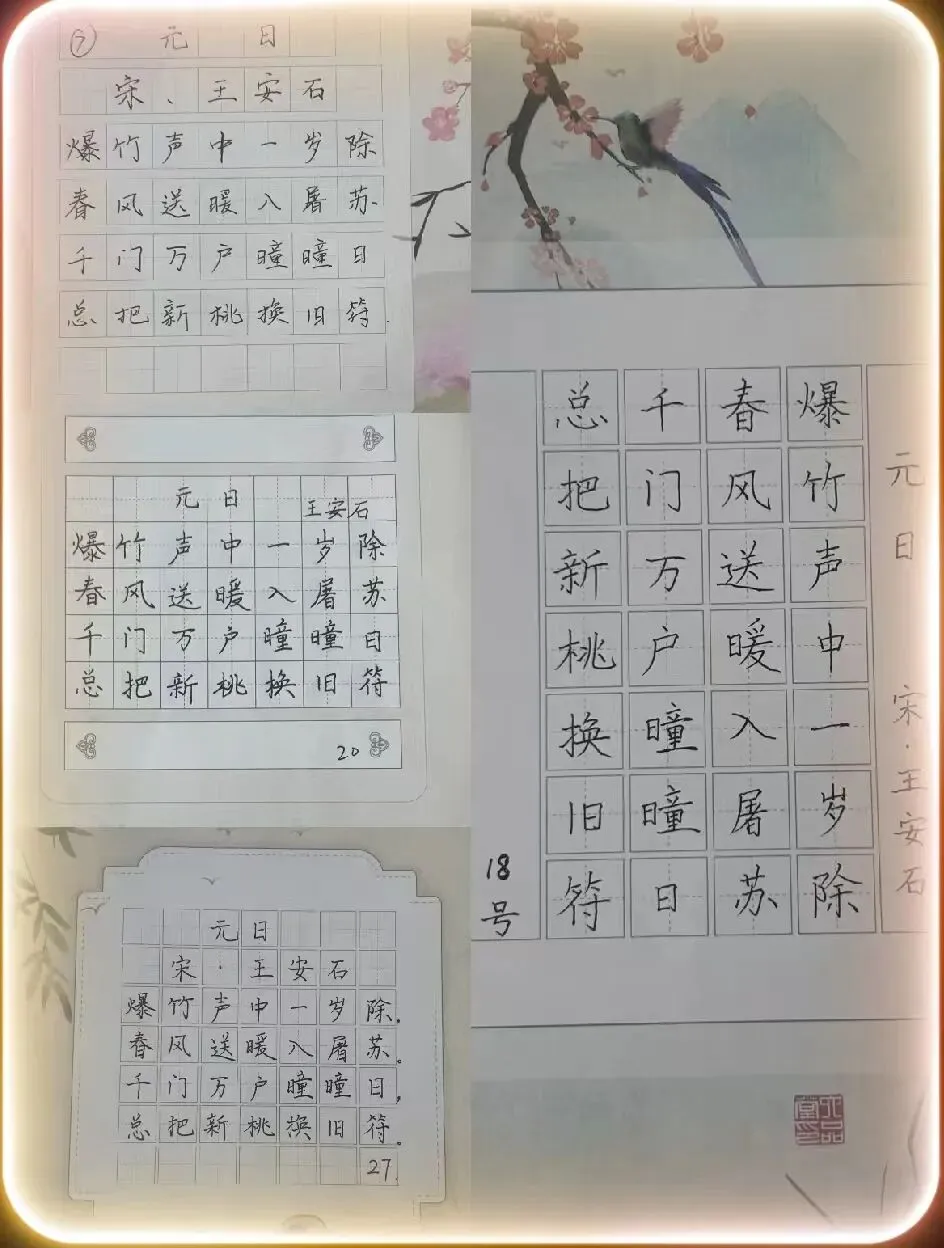 ⑦ 元日
宋、王安石
爆竹声中一岁除
春风送暖入屠苏
千门万户曈曈日
总把新桃换旧符.
元日 王安石
爆竹声中一岁除
春风送暖入屠苏
千门万户曈曈日
总把新桃换旧符
20
元日
宋·王安石
爆竹声中一岁除,
春风送暖入屠苏。
千门万户曈曈日,
总把新桃换旧符。
27.
元日 宋·王安石
爆竹声中一岁除
春风送暖入屠苏
千门万户曈曈日
总把新桃换旧符
18号